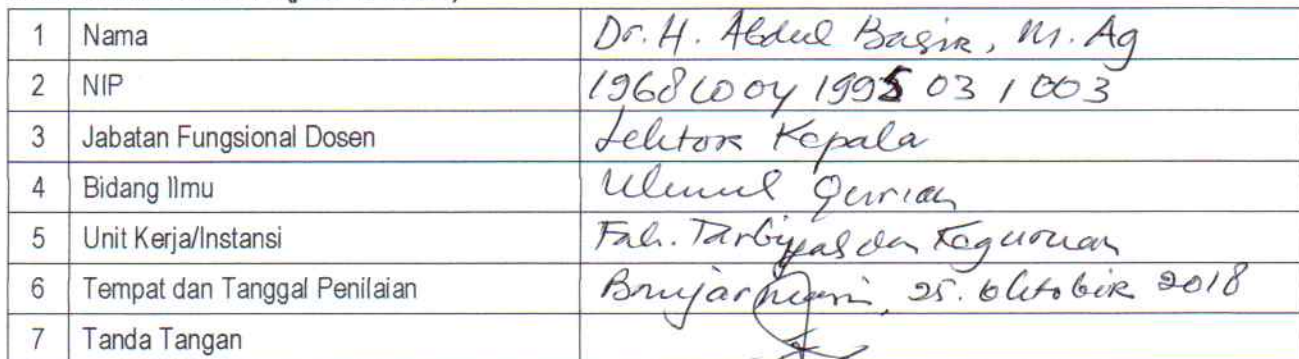 1 Nama Dr. H. Abdul Basir, M. Ag
2 NIP 19681004 199503 1 003
3 Jabatan Fungsional Dosen Lektor Kepala
4 Bidang Ilmu Ulumul Qur'an
5 Unit Kerja/Instansi Fak. Tarbiyah dan Keguruan
6 Tempat dan Tanggal Penilaian Banjarmasin, 25. Oktober 2018
7 Tanda Tangan